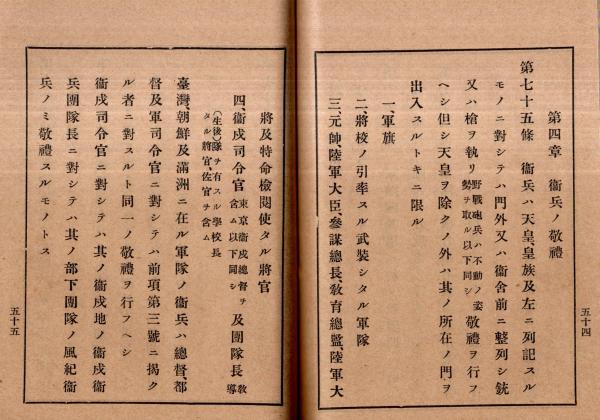 第四章　衞兵ノ敬禮
第七十五條　衞兵ハ天皇、皇族及左ニ列記スル
モノニ對シテハ門外又ハ衞舍前ニ整列シ銃
又ハ槍ヲ執リ野戰砲兵ハ不動ノ姿勢ヲ取ル以下同シ敬禮ヲ行フ
ヘシ但シ天皇ヲ除クノ外ハ其ノ所在ノ門ヲ
出入スルトキニ限ル
一、軍旗
二、將校ノ引率スル武裝シタル軍隊
三、元帥、陸軍大臣、參謀總長、敎育總監、陸軍大
五十四
將及特命檢閱使タル將官
四、衞戍司令官東京衞戍總督ヲ含ム以下同シ及團隊長敎導
(生後)隊ヲ有スル學校長
タル將官、佐官ヲ含ム
臺灣、朝鮮及滿洲ニ在ル軍隊ノ衞兵ハ總督、都
督及軍司令官ニ對シテハ前項第三號ニ揭ク
ル者ニ對スルト同一ノ敬禮ヲ行フヘシ
衞戍司令官ニ對シテハ其ノ衞戍地ノ衞戍衞
兵團隊長ニ對シテハ其ノ部下團隊ノ風紀衞
兵ノミ敬禮スルモノトス
五十五